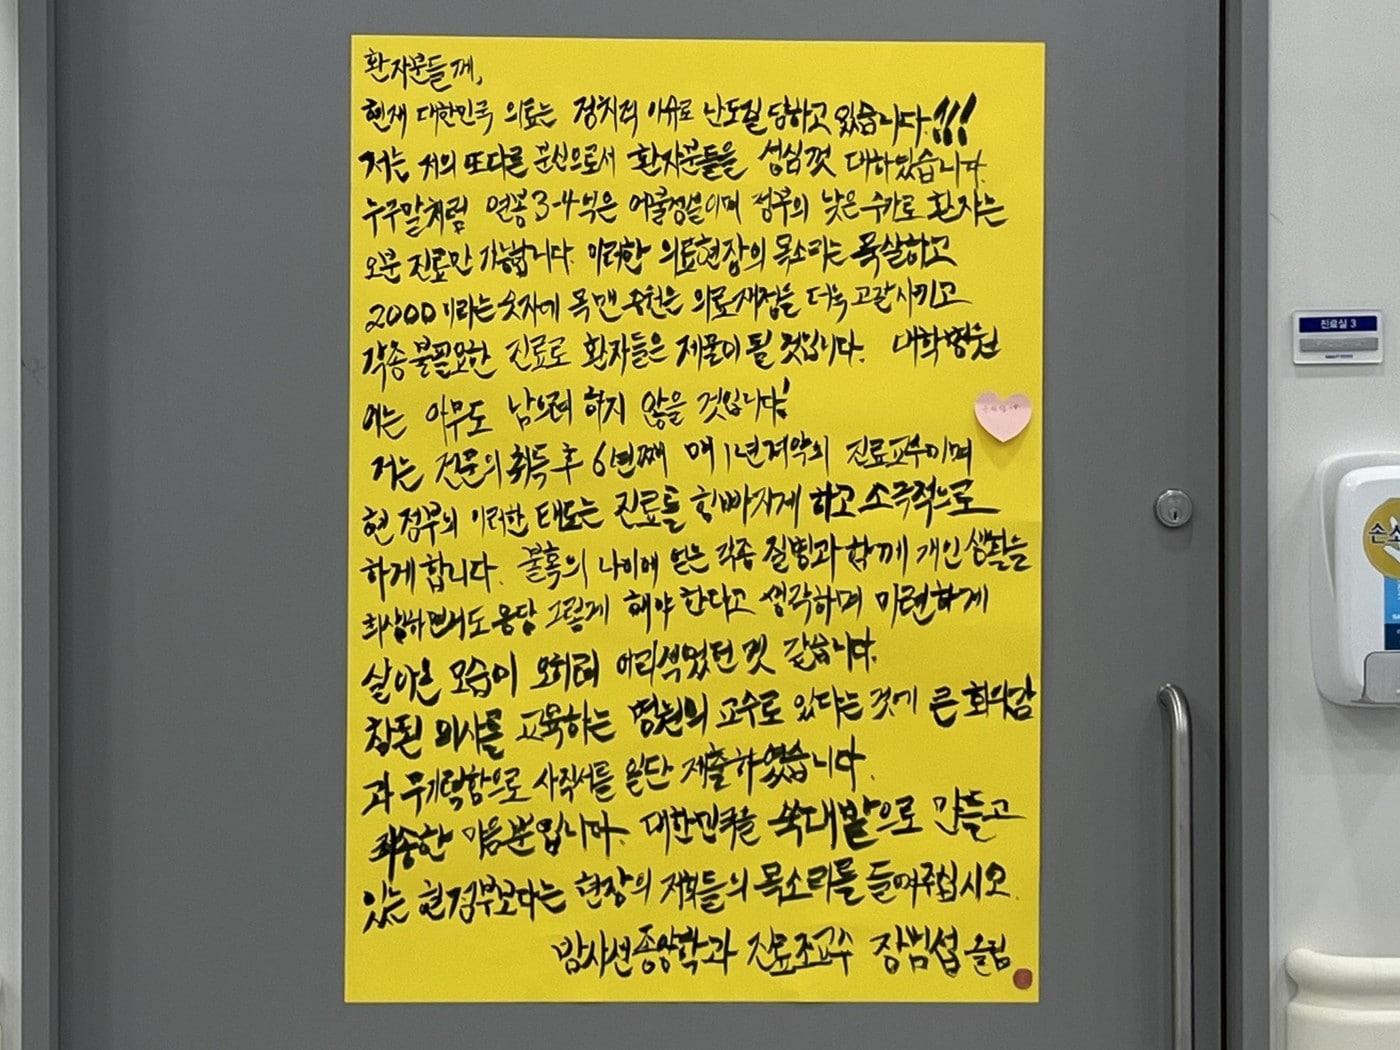 환자분들께,
현재 대한민국 의료는 정치적 이슈로 난도질 당하고 있습니다.!!!
저는 저의 또다른 분신으로서 환자분들을 성심껏 대하였습니다.
누구말처럼 연봉 3-4억은 어불성설이며 정부의 낮은 수가로 환자는
오분 진료만 가능합니다. 이러한 의료현장의 목소리는 묵살하고
2000이라는 숫자에 목맨 충원은 의료재정을 더욱 고갈시키고
각종 불필요한 진료로 환자들은 제물이 될 것입니다. 대학병원
에는 아무도 남으려 하지 않을 것입니다!
저는 전문의 취득 후 6년째 매 1년 계약의 진료교수이며
현 정부의 이러한 태도는 진료를 힘빠지게 하고 소극적으로
하게 합니다. 불혹의 나이에 얻은 각종 질병과 함께 개인 생활을
희생하면서도 응당 그렇게 해야 한다고 생각하며 미련하게
살아온 모습이 오히려 어리석었던 것 같습니다.
참된 의사를 교육하는 병원의 교수로 있다는 것에 큰 회의감
과 무기력함으로 사직서를 일단 제출하였습니다.
죄송한 마음뿐입니다. 대한민국을 쑥대밭으로 만들고
있는 현 정부보다는 현장의 저희들의 목소리를 들어주십시오.
방사선종양학과 진료조교수 장범섭 올림
진료실 3